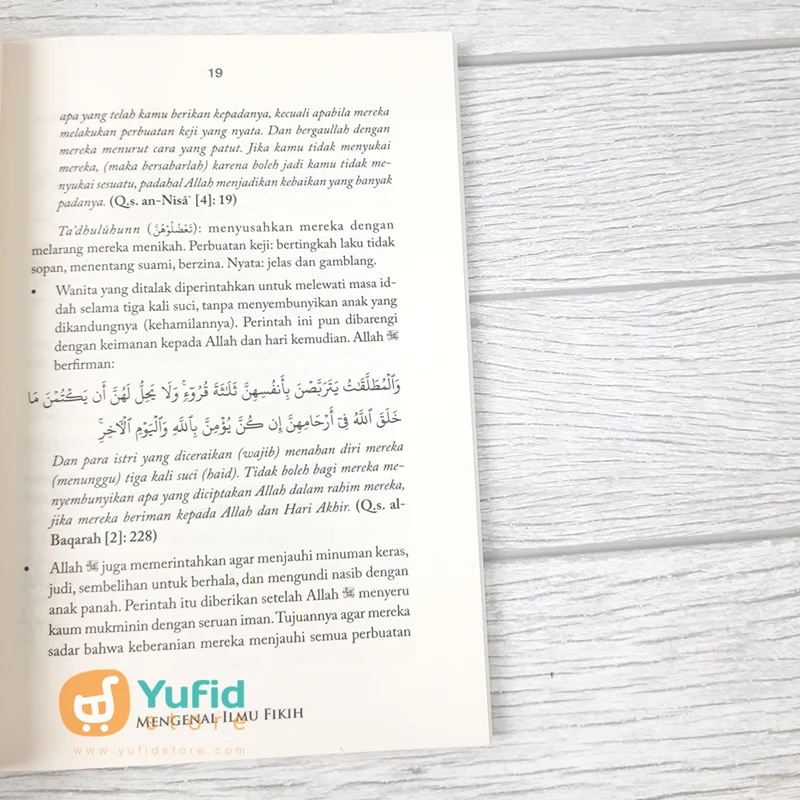 19
apa yang telah kamu berikan kepadanya, kecuali apabila mereka
melakukan perbuatan keji yang nyata. Dan bergaullah dengan
mereka menurut cara yang patut. Jika kamu tidak menyukai
mereka, (maka bersabarlah) karena boleh jadi kamu tidak me-
nyukai sesuatu, padahal Allah menjadikan kebaikan yang banyak
padanya. (Q.s. an-Nisâ` [4]: 19)
Ta'dhulûhunn (تَعْضُلُوْهُنَّ): menyusahkan mereka dengan
melarang mereka menikah. Perbuatan keji: bertingkah laku tidak
sopan, menentang suami, berzina. Nyata: jelas dan gamblang.
• Wanita yang ditalak diperintahkan untuk melewati masa id-
dah selama tiga kali suci, tanpa menyembunyikan anak yang
dikandungnya (kehamilannya). Perintah ini pun dibarengi
dengan keimanan kepada Allah dan hari kemudian. Allah ﷻ
berfirman:
وَالْمُطَلَّقَٰتُ يَتَرَبَّصْنَ بِأَنفُسِهِنَّ ثَلَٰثَةَ قُرُوٓءٍ ۚ وَلَا يَحِلُّ لَهُنَّ أَن يَكْتُمْنَ مَا
خَلَقَ اللَّهُ فِىٓ أَرْحَامِهِنَّ إِن كُنَّ يُؤْمِنَّ بِاللَّهِ وَالْيَوْمِ الْآخِرِ ۚ
Dan para istri yang diceraikan (wajib) menahan diri mereka
(menunggu) tiga kali suci (haid). Tidak boleh bagi mereka me-
nyembunyikan apa yang diciptakan Allah dalam rahim mereka,
jika mereka beriman kepada Allah dan Hari Akhir. (Q.s. al-
Baqarah [2]: 228)
• Allah ﷻ juga memerintahkan agar menjauhi minuman keras,
judi, sembelihan untuk berhala, dan mengundi nasib dengan
anak panah. Perintah itu diberikan setelah Allah ﷻ menyeru
kaum mukminin dengan seruan iman. Tujuannya agar mereka
sadar bahwa keberanian mereka menjauhi semua perbuatan
Yufid
store
MENGENAL ILMU FIKIH
www.yufidstore.com